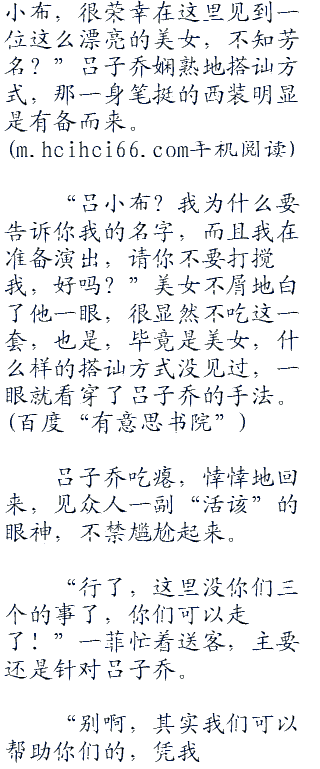 小布，很荣幸在这里见到一
位这么漂亮的美女，不知芳
名？”吕子乔娴熟地搭讪方
式，那一身笔挺的西装明显
是有备而来。
(m.hcihci66.com手机阅读)
“吕小布？我为什么要
告诉你我的名字，而且我在
准备演出，请你不要打搅
我，好吗？”美女不屑地白
了他一眼，很显然不吃这一
套，也是，毕竟是美女，什
么样的搭讪方式没见过，一
眼就看穿了吕子乔的手法。
(百度“有意思书院”)
吕子乔吃瘪，悻悻地回
来，见众人一副“活该”的
眼神，不禁尴尬起来。
“行了，这里没你们三
个的事了，你们可以走
了！”一菲忙着送客，主要
还是针对吕子乔。
“别啊，其实我们可以
帮助你们的，凭我